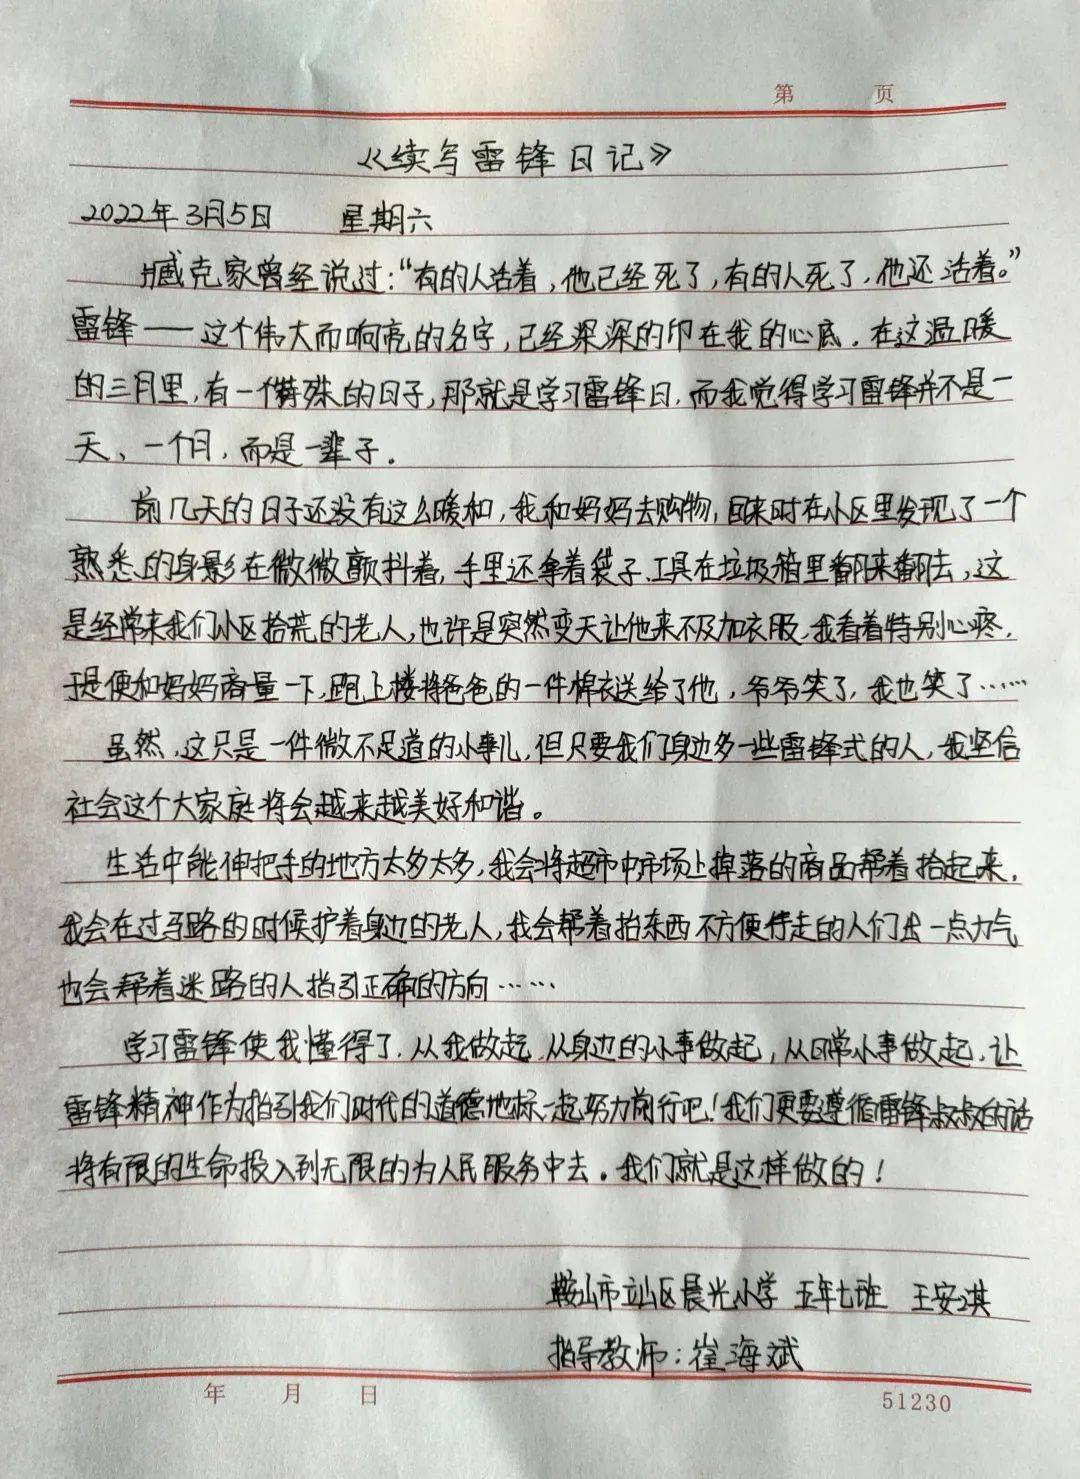 第 页
《续写雷锋日记》
2022年3月5日 星期六
臧克家曾经说过：“有的人活着，他已经死了，有的人死了，他还活着。”
雷锋——这个伟大而响亮的名字，已经深深的印在我的心底．在这温暖
的三月里，有一个特殊的日子，那就是学习雷锋日．而我觉得学习雷锋并不是一
天、一个月，而是一辈子．
前几天的日子还没有这么暖和，我和妈妈去购物，回来时在小区里发现了一个
熟悉的身影在微微颤抖着，手里还拿着袋子、工具在垃圾箱里翻来翻去，这
是经常来我们小区拾荒的老人，也许是突然变天让他来不及加衣服，我看着特别心疼．
于是便和妈妈商量一下，跑上楼将爸爸的一件棉衣送给了他，爷爷笑了，我也笑了……
虽然，这只是一件微不足道的小事儿，但只要我们身边多一些雷锋式的人，我坚信
社会这个大家庭将会越来越美好和谐。
生活中能伸把手的地方太多太多，我会将超市中市场上掉落的商品帮着拾起来，
我会在过马路的时候护着身边的老人，我会帮着抬东西不方便行走的人们出一点力气
也会帮着迷路的人指引正确的方向……
学习雷锋使我懂得了，从我做起，从身边的小事做起，从日常小事做起，让
雷锋精神作为指引我们时代的道德地标一起努力前行吧！我们更要遵循雷锋叔叔的话
将有限的生命投入到无限的为人民服务中去。我们就是这样做的！
鞍山市立山区晨光小学 五年七班 王安淇
指导教师：崔海斌
年 月 日 51230